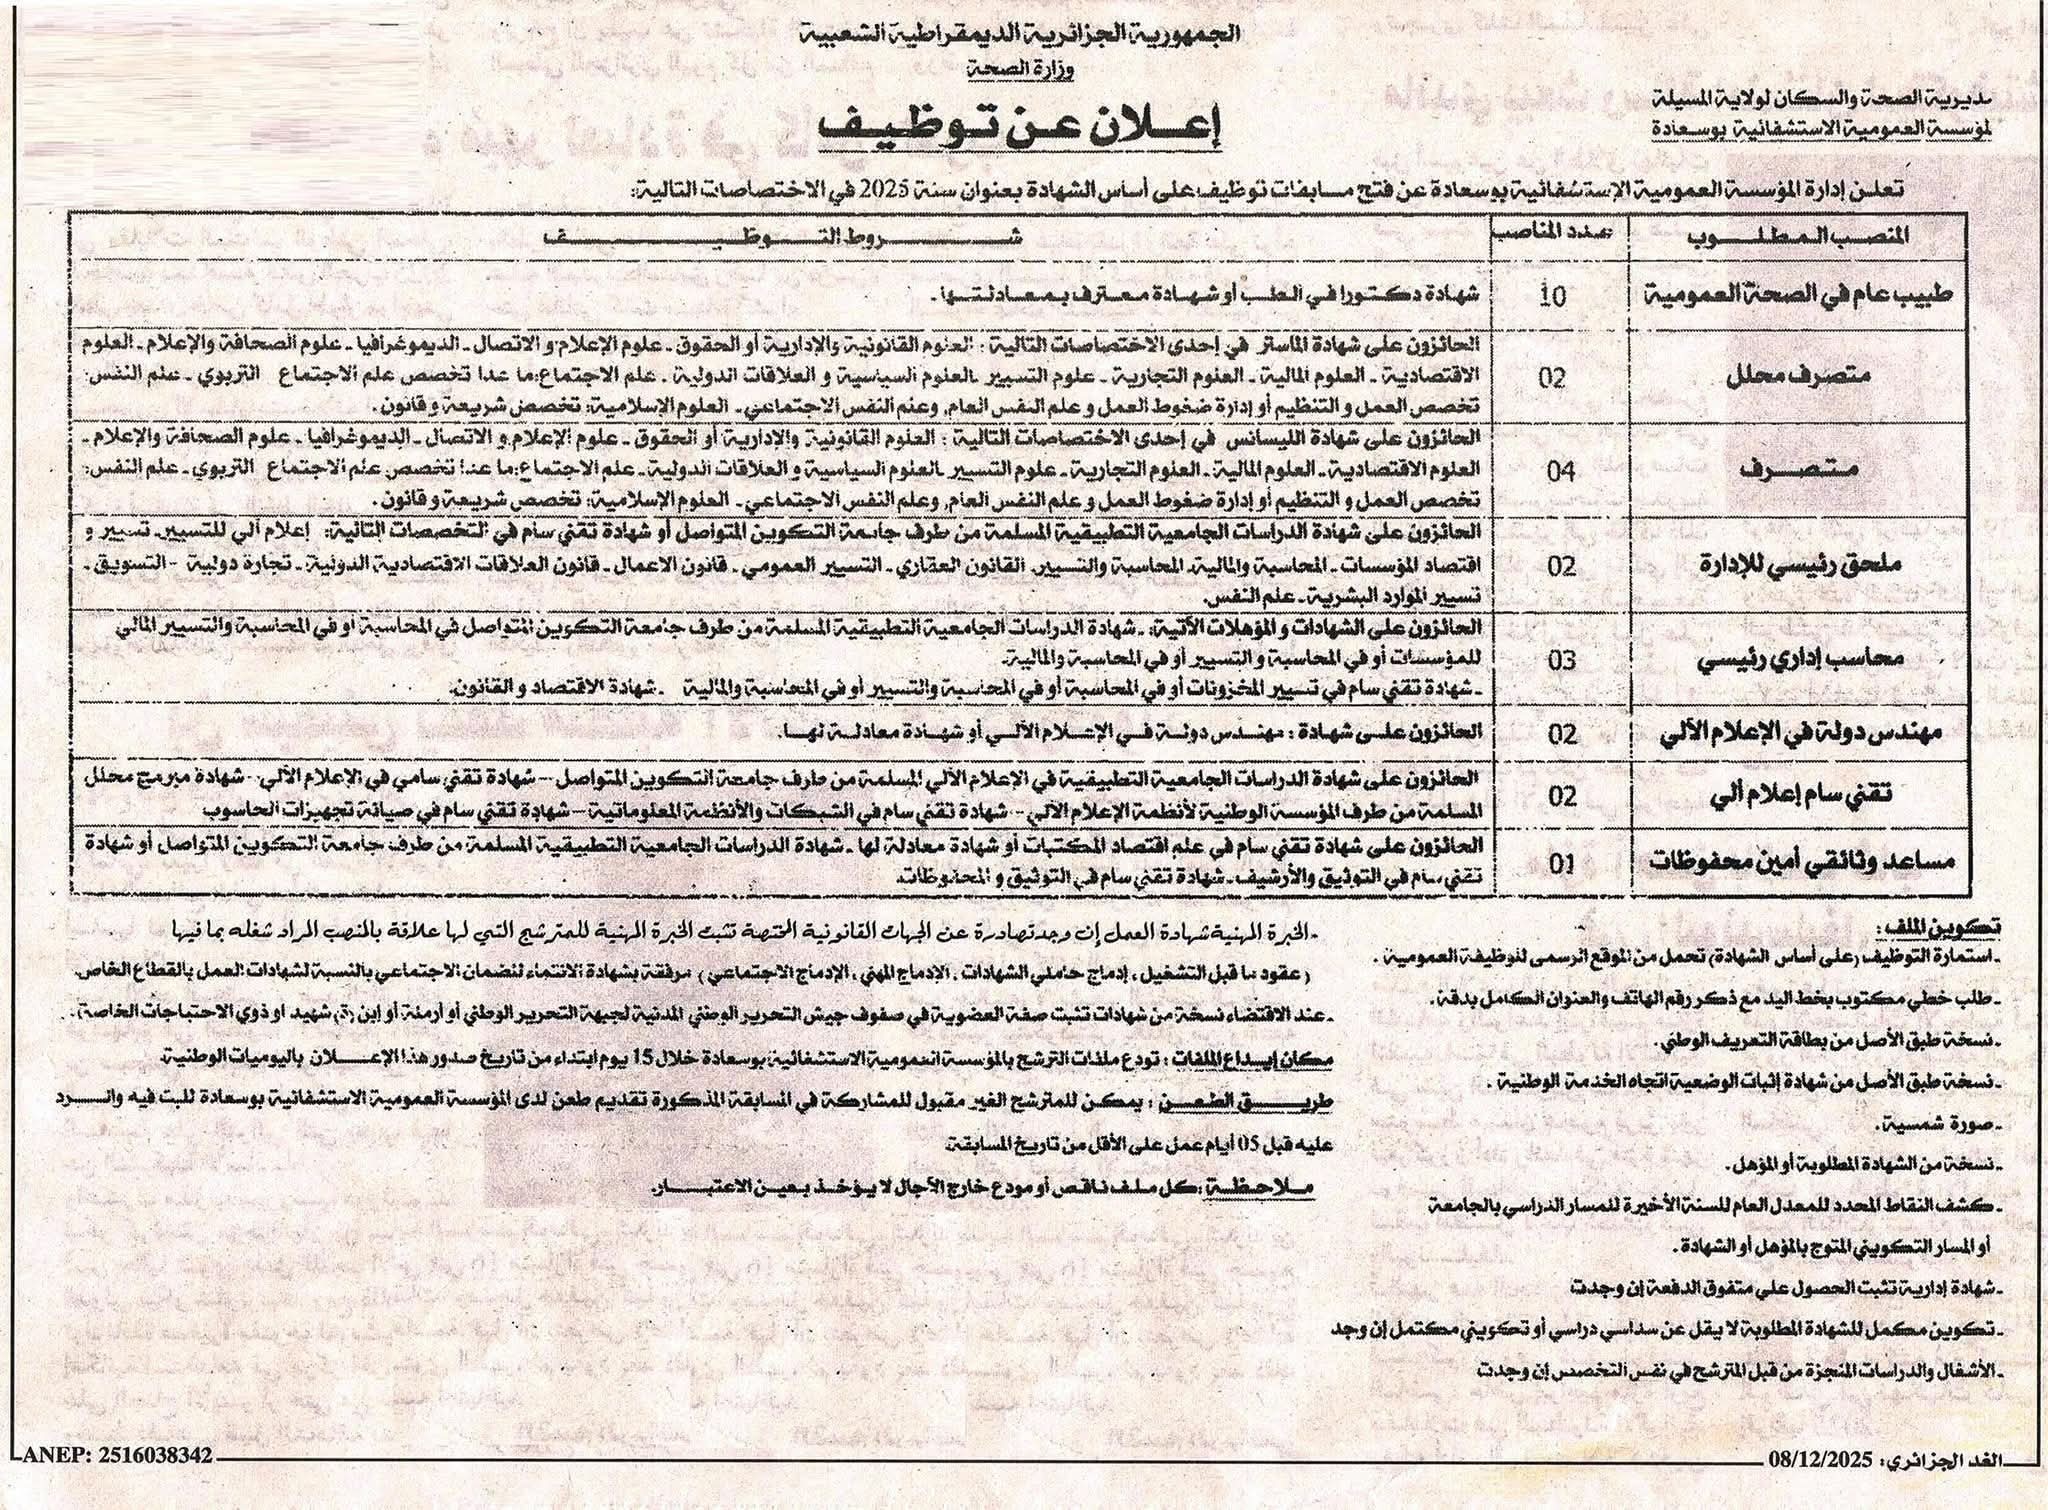 الجمهورية الجزائرية الديمقراطية الشعبية
وزارة الصحة
مديرية الصحة والسكان لولاية المسيلة
لمؤسسة العمومية الاستشفائية بوسعادة
إعـلان عـن تـوظـيـف
تعلن إدارة المؤسسة العمومية الإستشفائية بوسعادة عن فتح مسابقات توظيف على أساس الشهادة بعنوان سنة 2025 في الاختصاصات التالية:
المنصب المطلوب
عدد المناصب
شروط التوظيف
طبيب عام في الصحة العمومية
10
شهادة دكتورا في الطب أو شهادة معترف بمعادلتها.
متصرف محلل
02
الحائزون على شهادة الماستر في إحدى الاختصاصات التالية : العلوم القانونية والإدارية أو الحقوق ـ علوم الإعلام و الاتصال ـ الديموغرافيا ـ علوم الصحافة والإعلام ـ العلوم
الاقتصادية ـ العلوم المالية ـ العلوم التجارية ـ علوم التسيير ـ العلوم السياسية و العلاقات الدولية ـ علم الاجتماع: ما عدا تخصص علم الاجتماع التربوي ـ علم النفس:
تخصص العمل و التنظيم أو إدارة ضغوط العمل و علم النفس العام, وعلم النفس الاجتماعي ـ العلوم الإسلامية: تخصص شريعة و قانون.
متصرف
04
الحائزون على شهادة الليسانس في إحدى الاختصاصات التالية : العلوم القانونية والإدارية أو الحقوق ـ علوم الإعلام و الاتصال ـ الديموغرافيا ـ علوم الصحافة والإعلام ـ
العلوم الاقتصادية ـ العلوم المالية ـ العلوم التجارية ـ علوم التسيير ـ العلوم السياسية و العلاقات الدولية ـ علم الاجتماع: ما عدا تخصص علم الاجتماع التربوي ـ علم النفس:
تخصص العمل و التنظيم أو إدارة ضغوط العمل و علم النفس العام, وعلم النفس الاجتماعي ـ العلوم الإسلامية: تخصص شريعة و قانون.
ملحق رئيسي للإدارة
02
الحائزون على شهادة الدراسات الجامعية التطبيقية المسلمة من طرف جامعة التكوين المتواصل أو شهادة تقني سام في التخصصات التالية: إعلام آلي للتسيير ـ تسيير و
اقتصاد المؤسسات ـ المحاسبة والمالية ـ المحاسبة والتسيير ـ القانون العقاري ـ التسيير العمومي ـ قانون الاعمال ـ قانون العلاقات الاقتصادية الدولية ـ تجارة دولية - التسويق ـ
تسيير الموارد البشرية ـ علم النفس.
محاسب إداري رئيسي
03
الحائزون على الشهادات و المؤهلات الآتية: ـ شهادة الدراسات الجامعية التطبيقية المسلمة من طرف جامعة التكوين المتواصل في المحاسبة أو في المحاسبة والتسيير المالي
للمؤسسات أو في المحاسبة و التسيير أو في المحاسبة والمالية.
ـ شهادة تقني سام في تسيير المخزونات أو في المحاسبة أو في المحاسبة والتسيير أو في المحاسبة والمالية ـ شهادة الاقتصاد و القانون.
مهندس دولة في الإعلام الآلي
02
الحائزون على شهادة : مهندس دولة في الإعلام الآلي أو شهادة معادلة لها.
تقني سام إعلام آلي
02
الحائزون على شهادة الدراسات الجامعية التطبيقية في الإعلام الآلي المسلمة من طرف جامعة التكوين المتواصل – شهادة تقني سامي في الإعلام الآلي - شهادة مبرمج محلل
المسلمة من طرف المؤسسة الوطنية لأنظمة الإعلام الآلي - شهادة تقني سام في الشبكات والأنظمة المعلوماتية – شهادة تقني سام في صيانة تجهيزات الحاسوب
مساعد وثائقي أمين محفوظات
01
الحائزون على شهادة تقني سام في علم اقتصاد المكتبات أو شهادة معادلة لها ـ شهادة الدراسات الجامعية التطبيقية المسلمة من طرف جامعة التكوين المتواصل أو شهادة
تقني سام في التوثيق والأرشيف ـ شهادة تقني سام في التوثيق و المحفوظات.
تكوين الملف :
ـ استمارة التوظيف (على أساس الشهادة) تحمل من الموقع الرسمي للوظيفة العمومية .
ـ طلب خطي مكتوب بخط اليد مع ذكر رقم الهاتف والعنوان الكامل بدقة.
ـ نسخة طبق الأصل من بطاقة التعريف الوطني.
ـ نسخة طبق الأصل من شهادة إثبات الوضعية اتجاه الخدمة الوطنية .
ـ صورة شمسية .
ـ نسخة من الشهادة المطلوبة أو المؤهل.
ـ كشف النقاط المحدد للمعدل العام للسنة الأخيرة للمسار الدراسي بالجامعة
أو المسار التكويني المتوج بالمؤهل أو الشهادة .
شهادة إدارية تثبت الحصول على متفوق الدفعة إن وجدت
ـ تكوين مكمل للشهادة المطلوبة لا يقل عن سداسي دراسي أو تكويني مكتمل إن وجد
ـ الأشغال والدراسات المنجزة من قبل المترشح في نفس التخصص إن وجدت
ـ الخبرة المهنية شهادة العمل إن وجد تصادرة عن الجهات القانونية المختصة تثبت الخبرة المهنية للمترشح التي لها علاقة بالمنصب المراد شغله بما فيها
(عقود ما قبل التشغيل ، إدماج حاملي الشهادات ، الإدماج المهني ، الإدماج الاجتماعي) مرفقة بشهادة الانتماء للضمان الاجتماعي بالنسبة لشهادات العمل بالقطاع الخاص.
ـ عند الاقتضاء نسخة من شهادات تثبت صفة العضوية في صفوف جيش التحرير الوطني المدنية لجبهة التحرير الوطني أو أرملة أو إبن (ة) شهيد او ذوي الاحتياجات الخاصة).
مكان إيداع الملفات : تودع ملفات الترشح بالمؤسسة العمومية الاستشفائية بوسعادة خلال 15 يوم ابتداء من تاريخ صدور هذا الإعلان باليوميات الوطنية.
طريق الطعن : يمكن للمترشح الغير مقبول للمشاركة في المسابقة المذكورة تقديم طعن لدى المؤسسة العمومية الاستشفائية بوسعادة للبت فيه والرد
عليه قبل 05 أيام عمل على الأقل من تاريخ المسابقة
ملاحظة : كل ملف ناقص أو مودع خارج الآجال لا يؤخذ بعين الاعتبار.
ANEP: 2516038342
الغد الجزائري: 08/12/2025